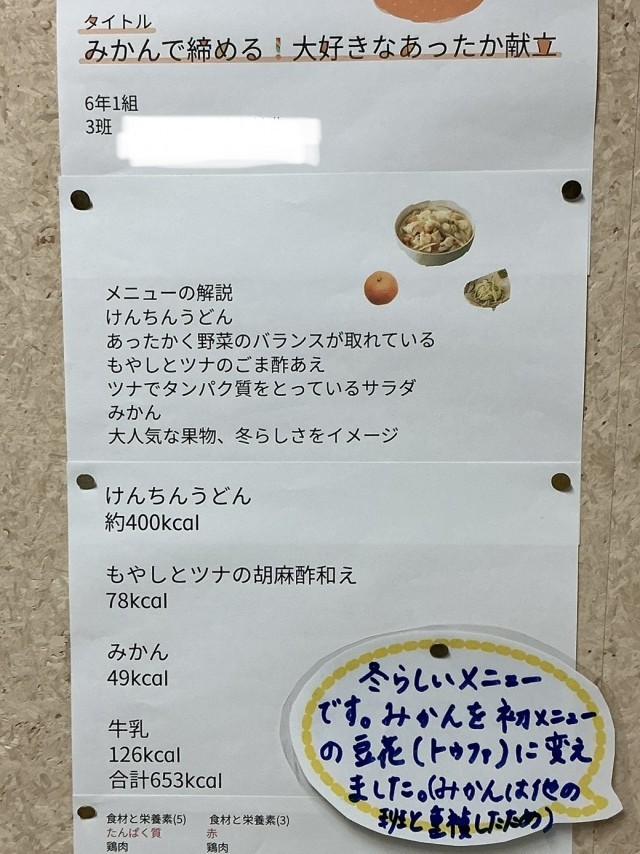 タイトル
みかんで締める！大好きなあったか献立
6年1組
3班
メニューの解説
けんちんうどん
あったかく野菜のバランスが取れている
もやしとツナのごま酢あえ
ツナでタンパク質をとっているサラダ
みかん
大人気な果物、冬らしさをイメージ
けんちんうどん
約400kcal
もやしとツナの胡麻酢和え
78kcal
みかん
49kcal
牛乳
126kcal
合計653kcal
冬らしいメニュー
です。みかんを初メニュー
の豆花(トゥファ)に変え
ました。(みかんは他の
班と重複したため)
食材と栄養素(5) 食材と栄養素(3)
たんぱく質 赤
鶏肉 鶏肉